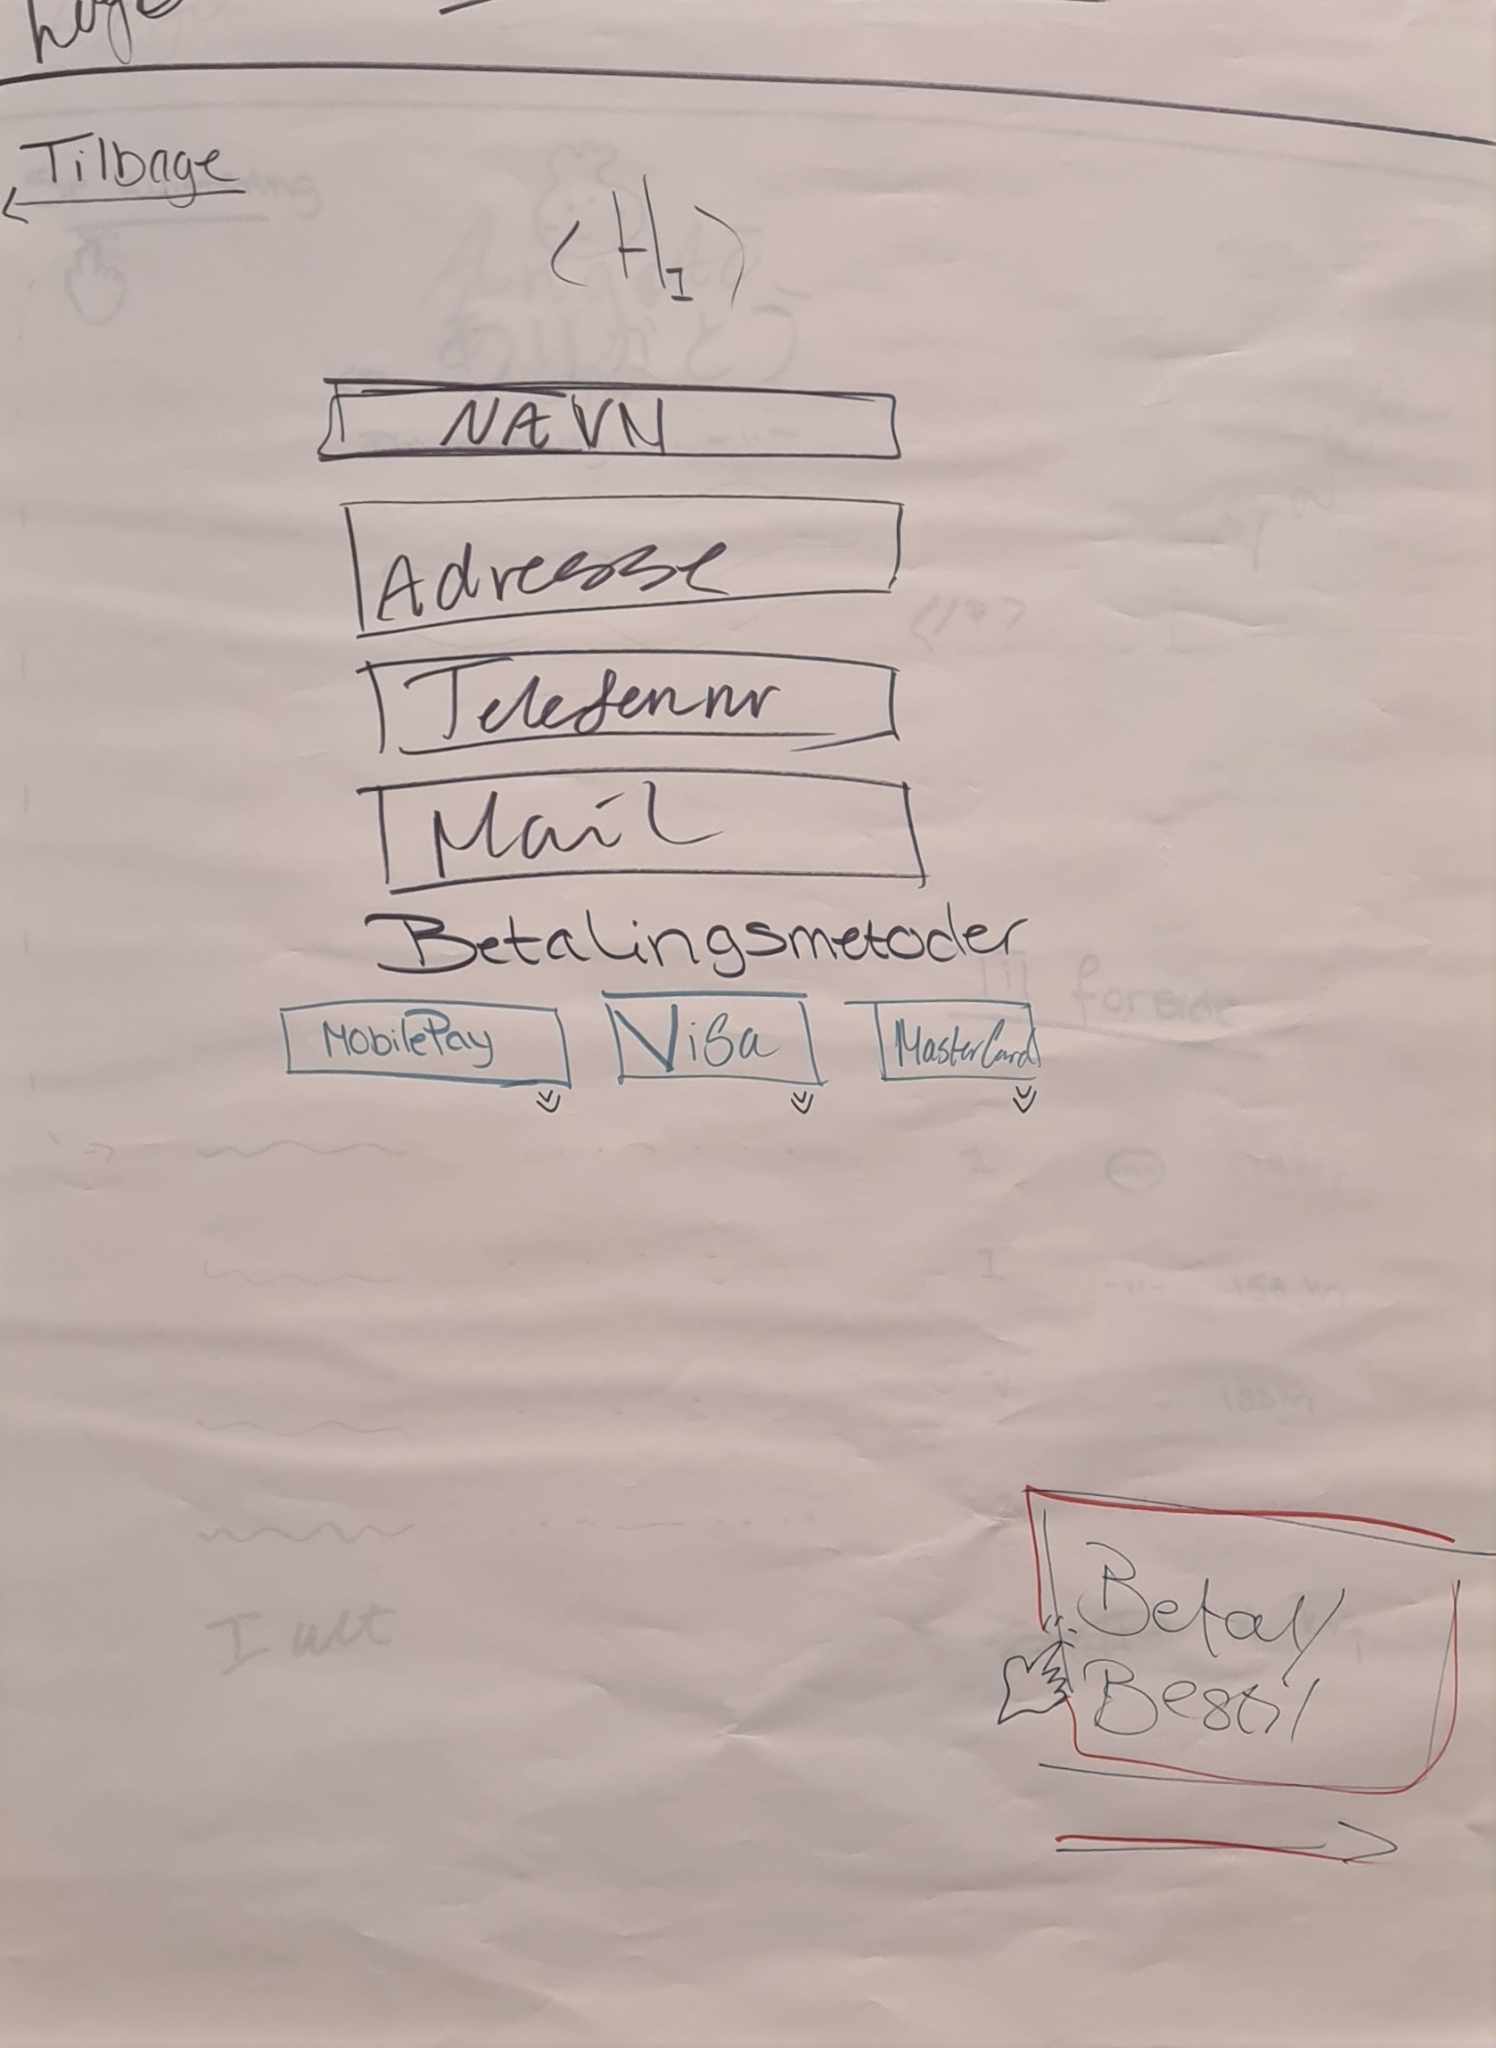 Tilbage
<H1>
NAVN
Adresse
Telefonnr
Mail
Betalingsmetoder
MobilePay Visa MasterCard
Betal/
Bestil
til forside
I alt